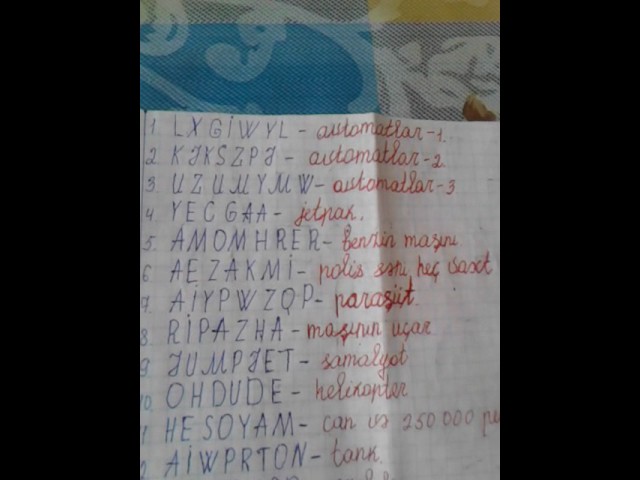 1. LXGİWYL - automatlar-1.
2. KJKSZPJ - automatlar-2.
3 UZUMYMW - automatlar-3
4 YECGAA - jetpak.
5. AMOMHRER - benzin maşını.
6 AEZAKMİ - polis səni heç vaxt
7. AİYPWZQP - paraşüt.
8. RİPAZHA - maşının uçar
9 JUMPJET - samalyot
10. OHDUDE - helikopter
HESOYAM - can və 250000
AİWPRTON - tank.